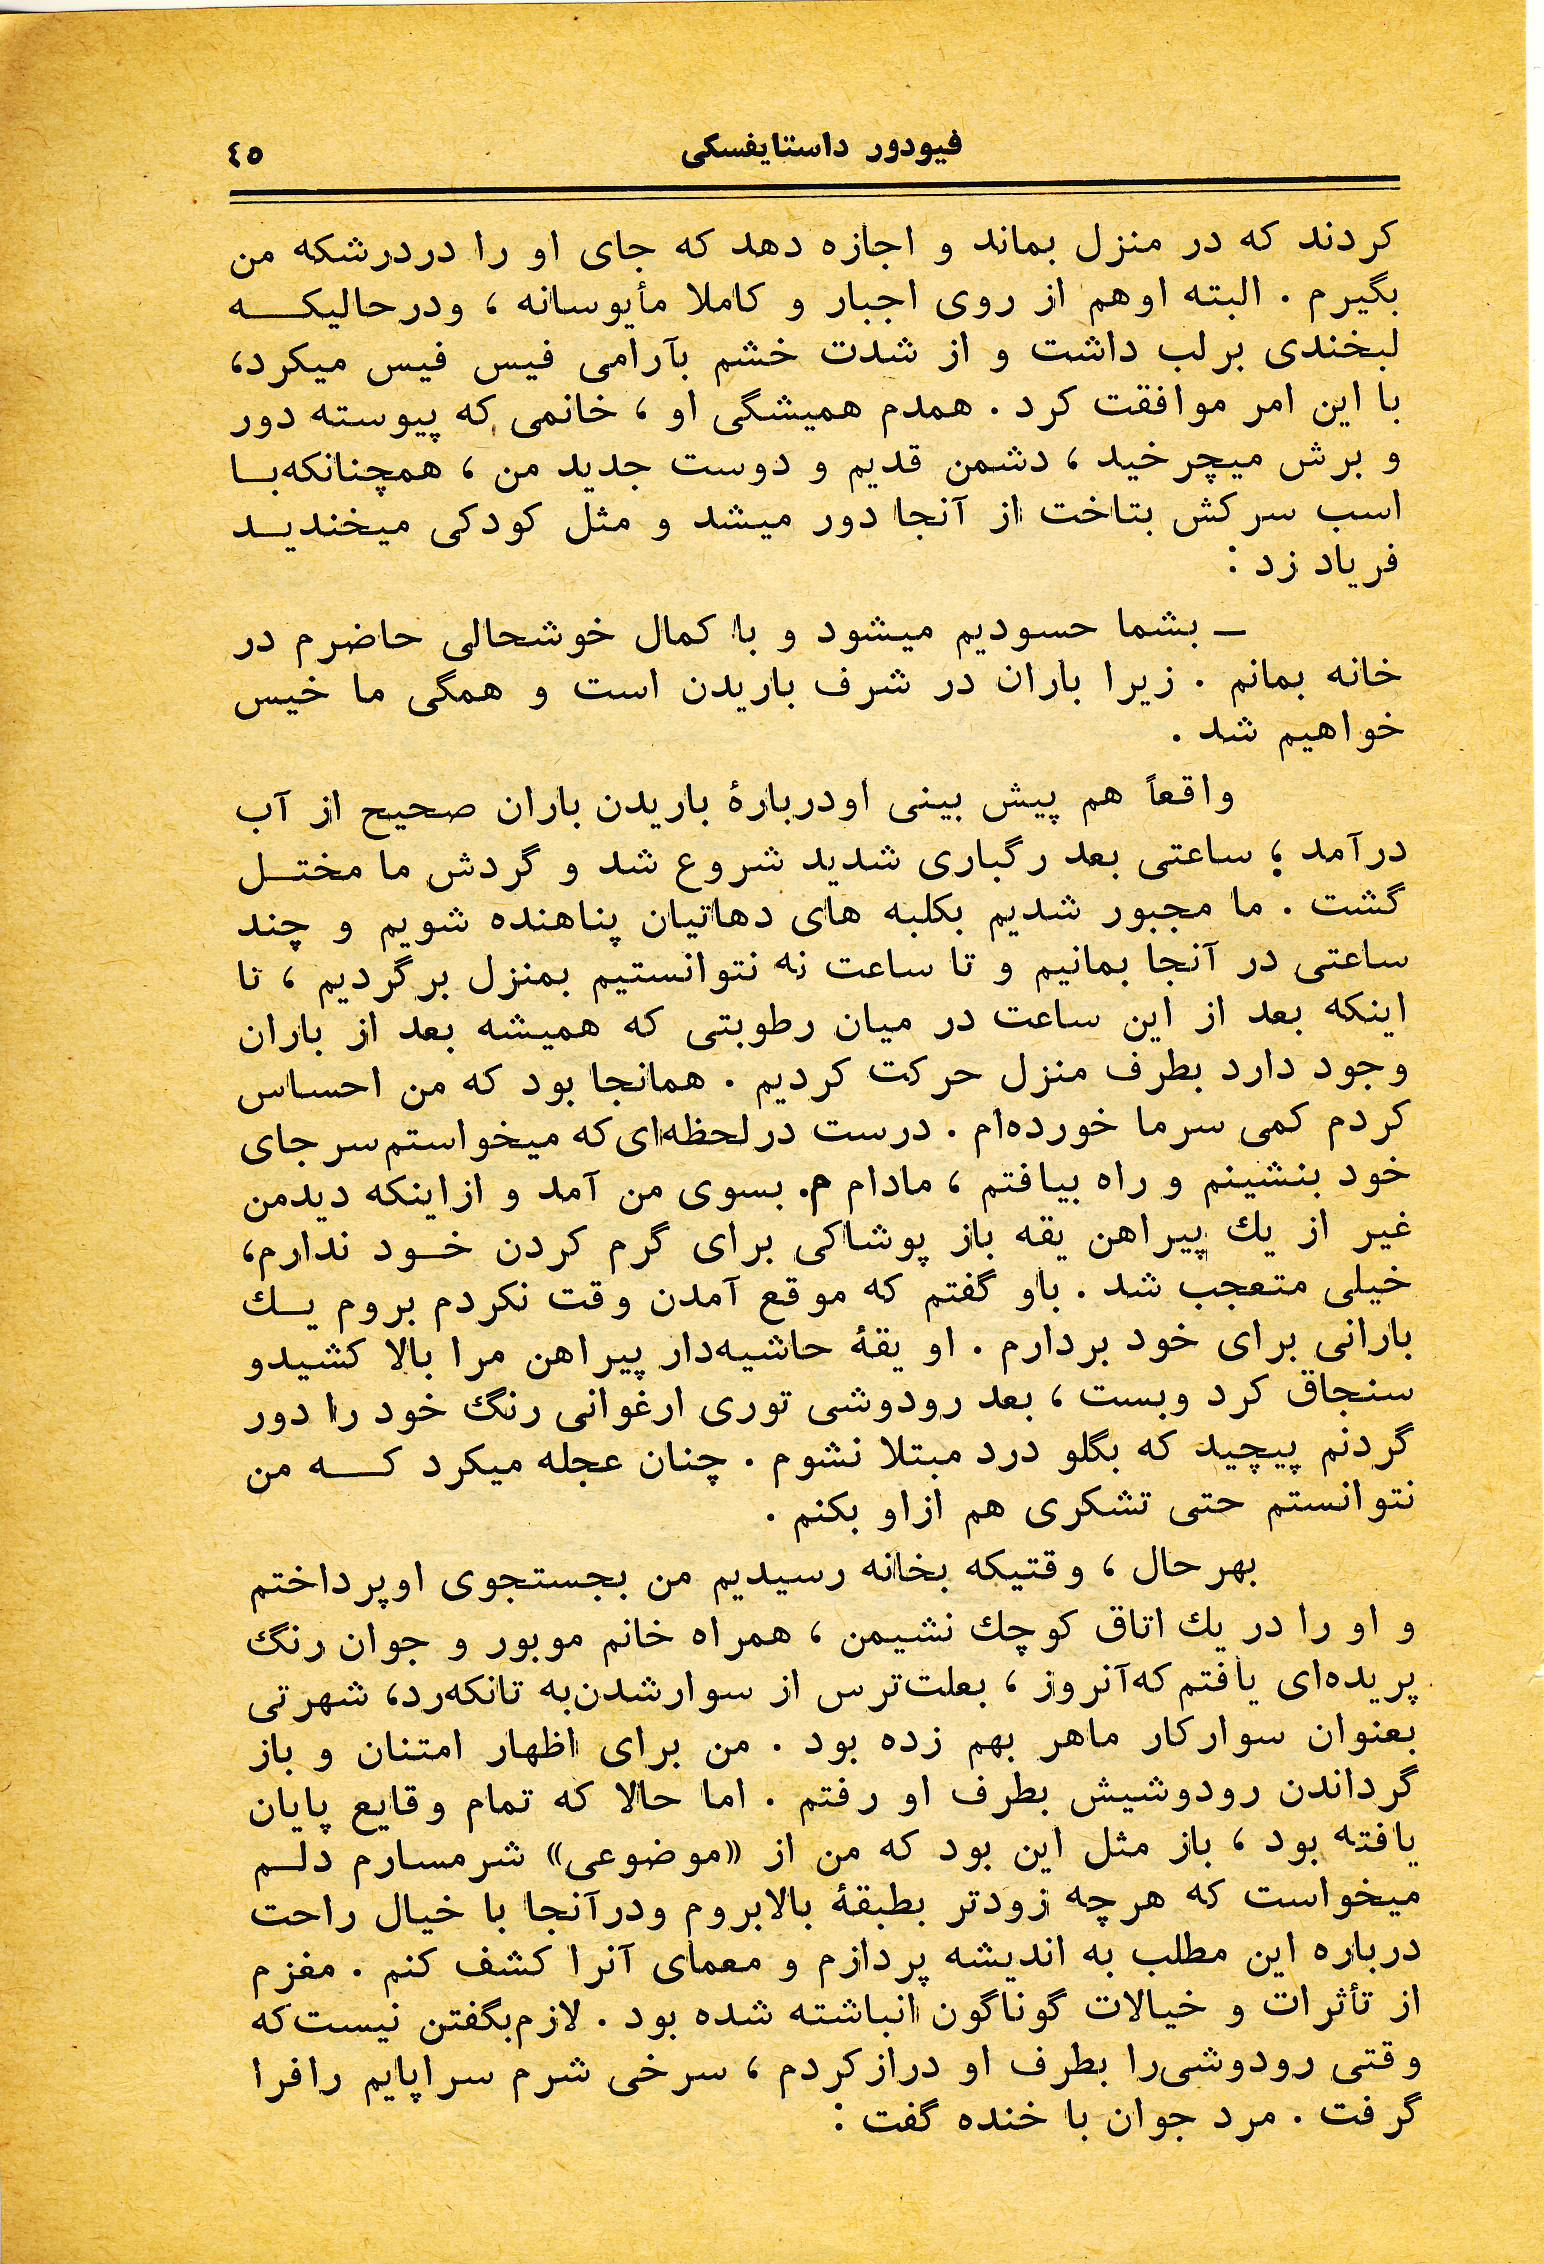 فیودور داستایفسکی
٤٥
کردند که در منزل بماند و اجازه دهد که جای او را دردرشکه من
بگیرم . البته اوهم از روی اجبار و کاملا مأیوسانه ، ودرحالیکــه
لبخندی برلب داشت و از شدت خشم بآرامی فیس فیس میکرد،
با این امر موافقت کرد . همدم همیشگی او ، خانمی که پیوسته دور
و برش میچرخید ، دشمن قدیم و دوست جدید من ، همچنانکه‌بـا
اسب سرکش بتاخت از آنجا دور میشد و مثل کودکی میخندیـد
فریاد زد :
ـ بشما حسودیم میشود و با کمال خوشحالی حاضرم در
خانه بمانم . زیرا باران در شرف باریدن است و همگی ما خیس
خواهیم شد .
واقعاً هم پیش بینی اودربارهٔ باریدن باران صحیح از آب
درآمد ؛ ساعتی بعد رگباری شدید شروع شد و گردش ما مختـل
گشت . ما مجبور شدیم بکلبه های دهاتیان پناهنده شویم و چند
ساعتی در آنجا بمانیم و تا ساعت نه نتوانستیم بمنزل برگردیم ، تا
اینکه بعد از این ساعت در میان رطوبتی که همیشه بعد از باران
وجود دارد بطرف منزل حرکت کردیم . همانجا بود که من احساس
کردم کمی سرما خورده‌ام . درست درلحظه‌ای‌که میخواستم‌سرجای
خود بنشینم و راه بیافتم ، مادام م. بسوی من آمد و ازاینکه دیدمن
غیر از یك پیراهن یقه باز پوشاکی برای گرم کردن خـود ندارم،
خیلی متعجب شد . باو گفتم که موقع آمدن وقت نکردم بروم یـك
بارانی برای خود بردارم . او یقهٔ حاشیه‌دار پیراهن مرا بالا کشیدو
سنجاق کرد وبست ، بعد رودوشی توری ارغوانی رنگ خود را دور
گردنم پیچید که بگلو درد مبتلا نشوم . چنان عجله میکرد کــه من
نتوانستم حتی تشکری هم ازاو بکنم .
بهرحال ، وقتیکه بخانه رسیدیم من بجستجوی اوپرداختم
و او را در یك اتاق کوچك نشیمن ، همراه خانم موبور و جوان رنگ
پریده‌ای یافتم که‌آنروز ، بعلت‌ترس از سوارشدن‌به تانکه‌رد، شهرتی
بعنوان سوارکار ماهر بهم زده بود . من برای اظهار امتنان و باز
گرداندن رودوشیش بطرف او رفتم . اما حالا که تمام وقایع پایان
یافته بود ، باز مثل این بود که من از «موضوعی» شرمسارم دلـم
میخواست که هرچه زودتر بطبقهٔ بالابروم ودرآنجا با خیال راحت
درباره این مطلب به اندیشه پردازم و معمای آنرا کشف کنم . مغزم
از تأثرات و خیالات گوناگون انباشته شده بود . لازم‌بگفتن نیست‌که
وقتی رودوشی‌را بطرف او درازکردم ، سرخی شرم سراپایم رافرا
گرفت . مرد جوان با خنده گفت :